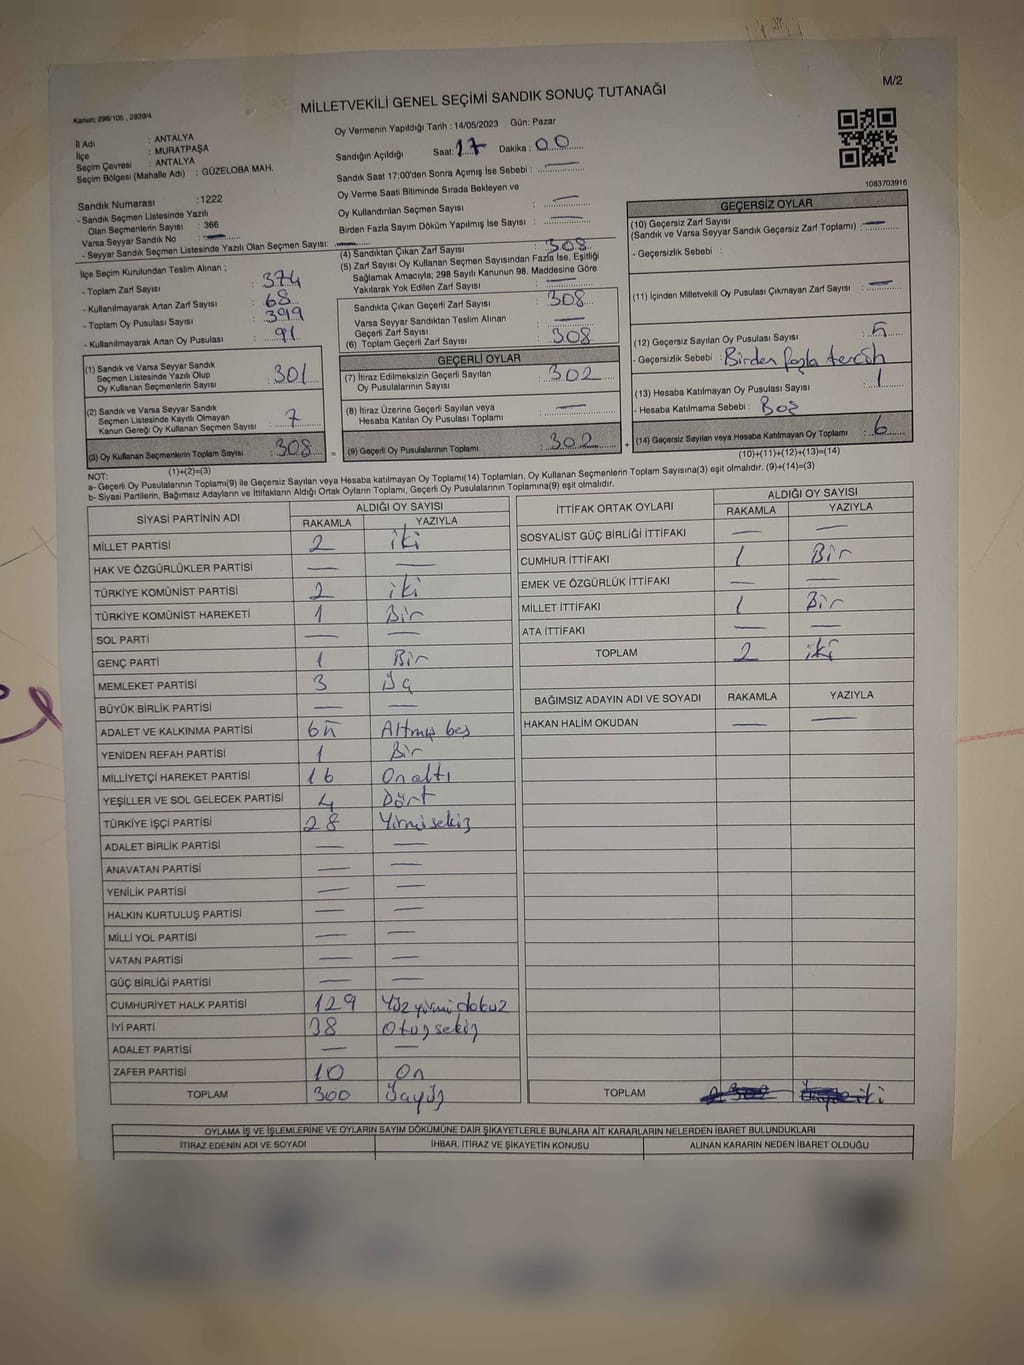 M/2
MİLLETVEKİLİ GENEL SEÇİMİ SANDIK SONUÇ TUTANAĞI
Kanun: 298/105, 2839/4
İl Adı : ANTALYA
İlçe : MURATPAŞA
Seçim Çevresi : ANTALYA
Seçim Bölgesi (Mahalle Adı) : GÜZELOBA MAH.
Oy Vermenin Yapıldığı Tarih : 14/05/2023 Gün: Pazar
Sandığın Açıldığı Saat: 17 Dakika : 00
Sandık Saat 17:00'den Sonra Açımış İse Sebebi : —
Oy Verme Saati Bitiminde Sırada Bekleyen ve
Oy Kullandırılan Seçmen Sayısı : —
Birden Fazla Sayım Döküm Yapılmış İse Sayısı : —
1083703916
Sandık Numarası : 1222
- Sandık Seçmen Listesinde Yazılı
Olan Seçmenlerin Sayısı : 366
Varsa Seyyar Sandık No : —
- Seyyar Sandık Seçmen Listesinde Yazılı Olan Seçmen Sayısı: —
İlçe Seçim Kurulundan Teslim Alınan ;
- Toplam Zarf Sayısı : 374
- Kullanılmayarak Artan Zarf Sayısı : 68
- Toplam Oy Pusulası Sayısı : 399
- Kullanılmayarak Artan Oy Pusulası : 91
(1) Sandık ve Varsa Seyyar Sandık
Seçmen Listesinde Yazılı Olup
Oy Kullanan Seçmenlerin Sayısı : 301
(2) Sandık ve Varsa Seyyar Sandık
Seçmen Listesinde Kayıtlı Olmayan
Kanun Gereği Oy Kullanan Seçmen Sayısı : 7
(3) Oy Kullanan Seçmenlerin Toplam Sayısı : 308
(1)+(2)=(3)
(4) Sandıktan Çıkan Zarf Sayısı : 308
(5) Zarf Sayısı Oy Kullanan Seçmen Sayısından Fazla İse, Eşitliği
Sağlamak Amacıyla; 298 Sayılı Kanunun 98. Maddesine Göre
Yakılarak Yok Edilen Zarf Sayısı : —
Sandıkta Çıkan Geçerli Zarf Sayısı : 308
Varsa Seyyar Sandıktan Teslim Alınan
Geçerli Zarf Sayısı : —
(6) Toplam Geçerli Zarf Sayısı : 308
GEÇERLİ OYLAR
(7) İtiraz Edilmeksizin Geçerli Sayılan
Oy Pusulalarının Sayısı : 302
(8) İtiraz Üzerine Geçerli Sayılan veya
Hesaba Katılan Oy Pusulası Toplamı : —
= (9) Geçerli Oy Pusulalarının Toplamı : 302 +
GEÇERSİZ OYLAR
(10) Geçersiz Zarf Sayısı
(Sandık ve Varsa Seyyar Sandık Geçersiz Zarf Toplamı) : —
- Geçersizlik Sebebi :
(11) İçinden Milletvekili Oy Pusulası Çıkmayan Zarf Sayısı : —
(12) Geçersiz Sayılan Oy Pusulası Sayısı : 5
- Geçersizlik Sebebi : Birden fazla tercih
(13) Hesaba Katılmayan Oy Pusulası Sayısı : 1
- Hesaba Katılmama Sebebi : Boş
(14) Geçersiz Sayılan veya Hesaba Katılmayan Oy Toplamı : 6
(10)+(11)+(12)+(13)=(14)
NOT:
a- Geçerli Oy Pusulalarının Toplamı(9) ile Geçersiz Sayılan veya Hesaba katılmayan Oy Toplamı(14) Toplamları, Oy Kullanan Seçmenlerin Toplam Sayısına(3) eşit olmalıdır. (9)+(14)=(3)
b- Siyasi Partilerin, Bağımsız Adayların ve İttifakların Aldığı Ortak Oyların Toplamı, Geçerli Oy Pusulalarının Toplamına(9) eşit olmalıdır.
SİYASİ PARTİNİN ADI ALDIĞI OY SAYISI
RAKAMLA YAZIYLA
MİLLET PARTİSİ 2 iki
HAK VE ÖZGÜRLÜKLER PARTİSİ — —
TÜRKİYE KOMÜNİST PARTİSİ 2 iki
TÜRKİYE KOMÜNİST HAREKETİ 1 Bir
SOL PARTİ — —
GENÇ PARTİ 1 Bir
MEMLEKET PARTİSİ 3 Üç
BÜYÜK BİRLİK PARTİSİ — —
ADALET VE KALKINMA PARTİSİ 65 Altmış beş
YENİDEN REFAH PARTİSİ 1 Bir
MİLLİYETÇİ HAREKET PARTİSİ 16 On altı
YEŞİLLER VE SOL GELECEK PARTİSİ 4 Dört
TÜRKİYE İŞÇİ PARTİSİ 28 Yirmi sekiz
ADALET BİRLİK PARTİSİ — —
ANAVATAN PARTİSİ — —
YENİLİK PARTİSİ — —
HALKIN KURTULUŞ PARTİSİ — —
MİLLİ YOL PARTİSİ — —
VATAN PARTİSİ — —
GÜÇ BİRLİĞİ PARTİSİ — —
CUMHURİYET HALK PARTİSİ 129 Yüz yirmi dokuz
İYİ PARTİ 38 Otuz sekiz
ADALET PARTİSİ — —
ZAFER PARTİSİ 10 On
TOPLAM 300 Üçyüz
İTTİFAK ORTAK OYLARI ALDIĞI OY SAYISI
RAKAMLA YAZIYLA
SOSYALİST GÜÇ BİRLİĞİ İTTİFAKI — —
CUMHUR İTTİFAKI 1 Bir
EMEK VE ÖZGÜRLÜK İTTİFAKI — —
MİLLET İTTİFAKI 1 Bir
ATA İTTİFAKI — —
TOPLAM 2 iki
BAĞIMSIZ ADAYIN ADI VE SOYADI RAKAMLA YAZIYLA
HAKAN HALİM OKUDAN — —
TOPLAM
OYLAMA İŞ VE İŞLEMLERİNE VE OYLARIN SAYIM DÖKÜMÜNE DAİR ŞİKAYETLERLE BUNLARA AİT KARARLARIN NELERDEN İBARET BULUNDUKLARI
İTİRAZ EDENİN ADI VE SOYADI İHBAR, İTİRAZ VE ŞİKAYETİN KONUSU ALINAN KARARIN NEDEN İBARET OLDUĞU